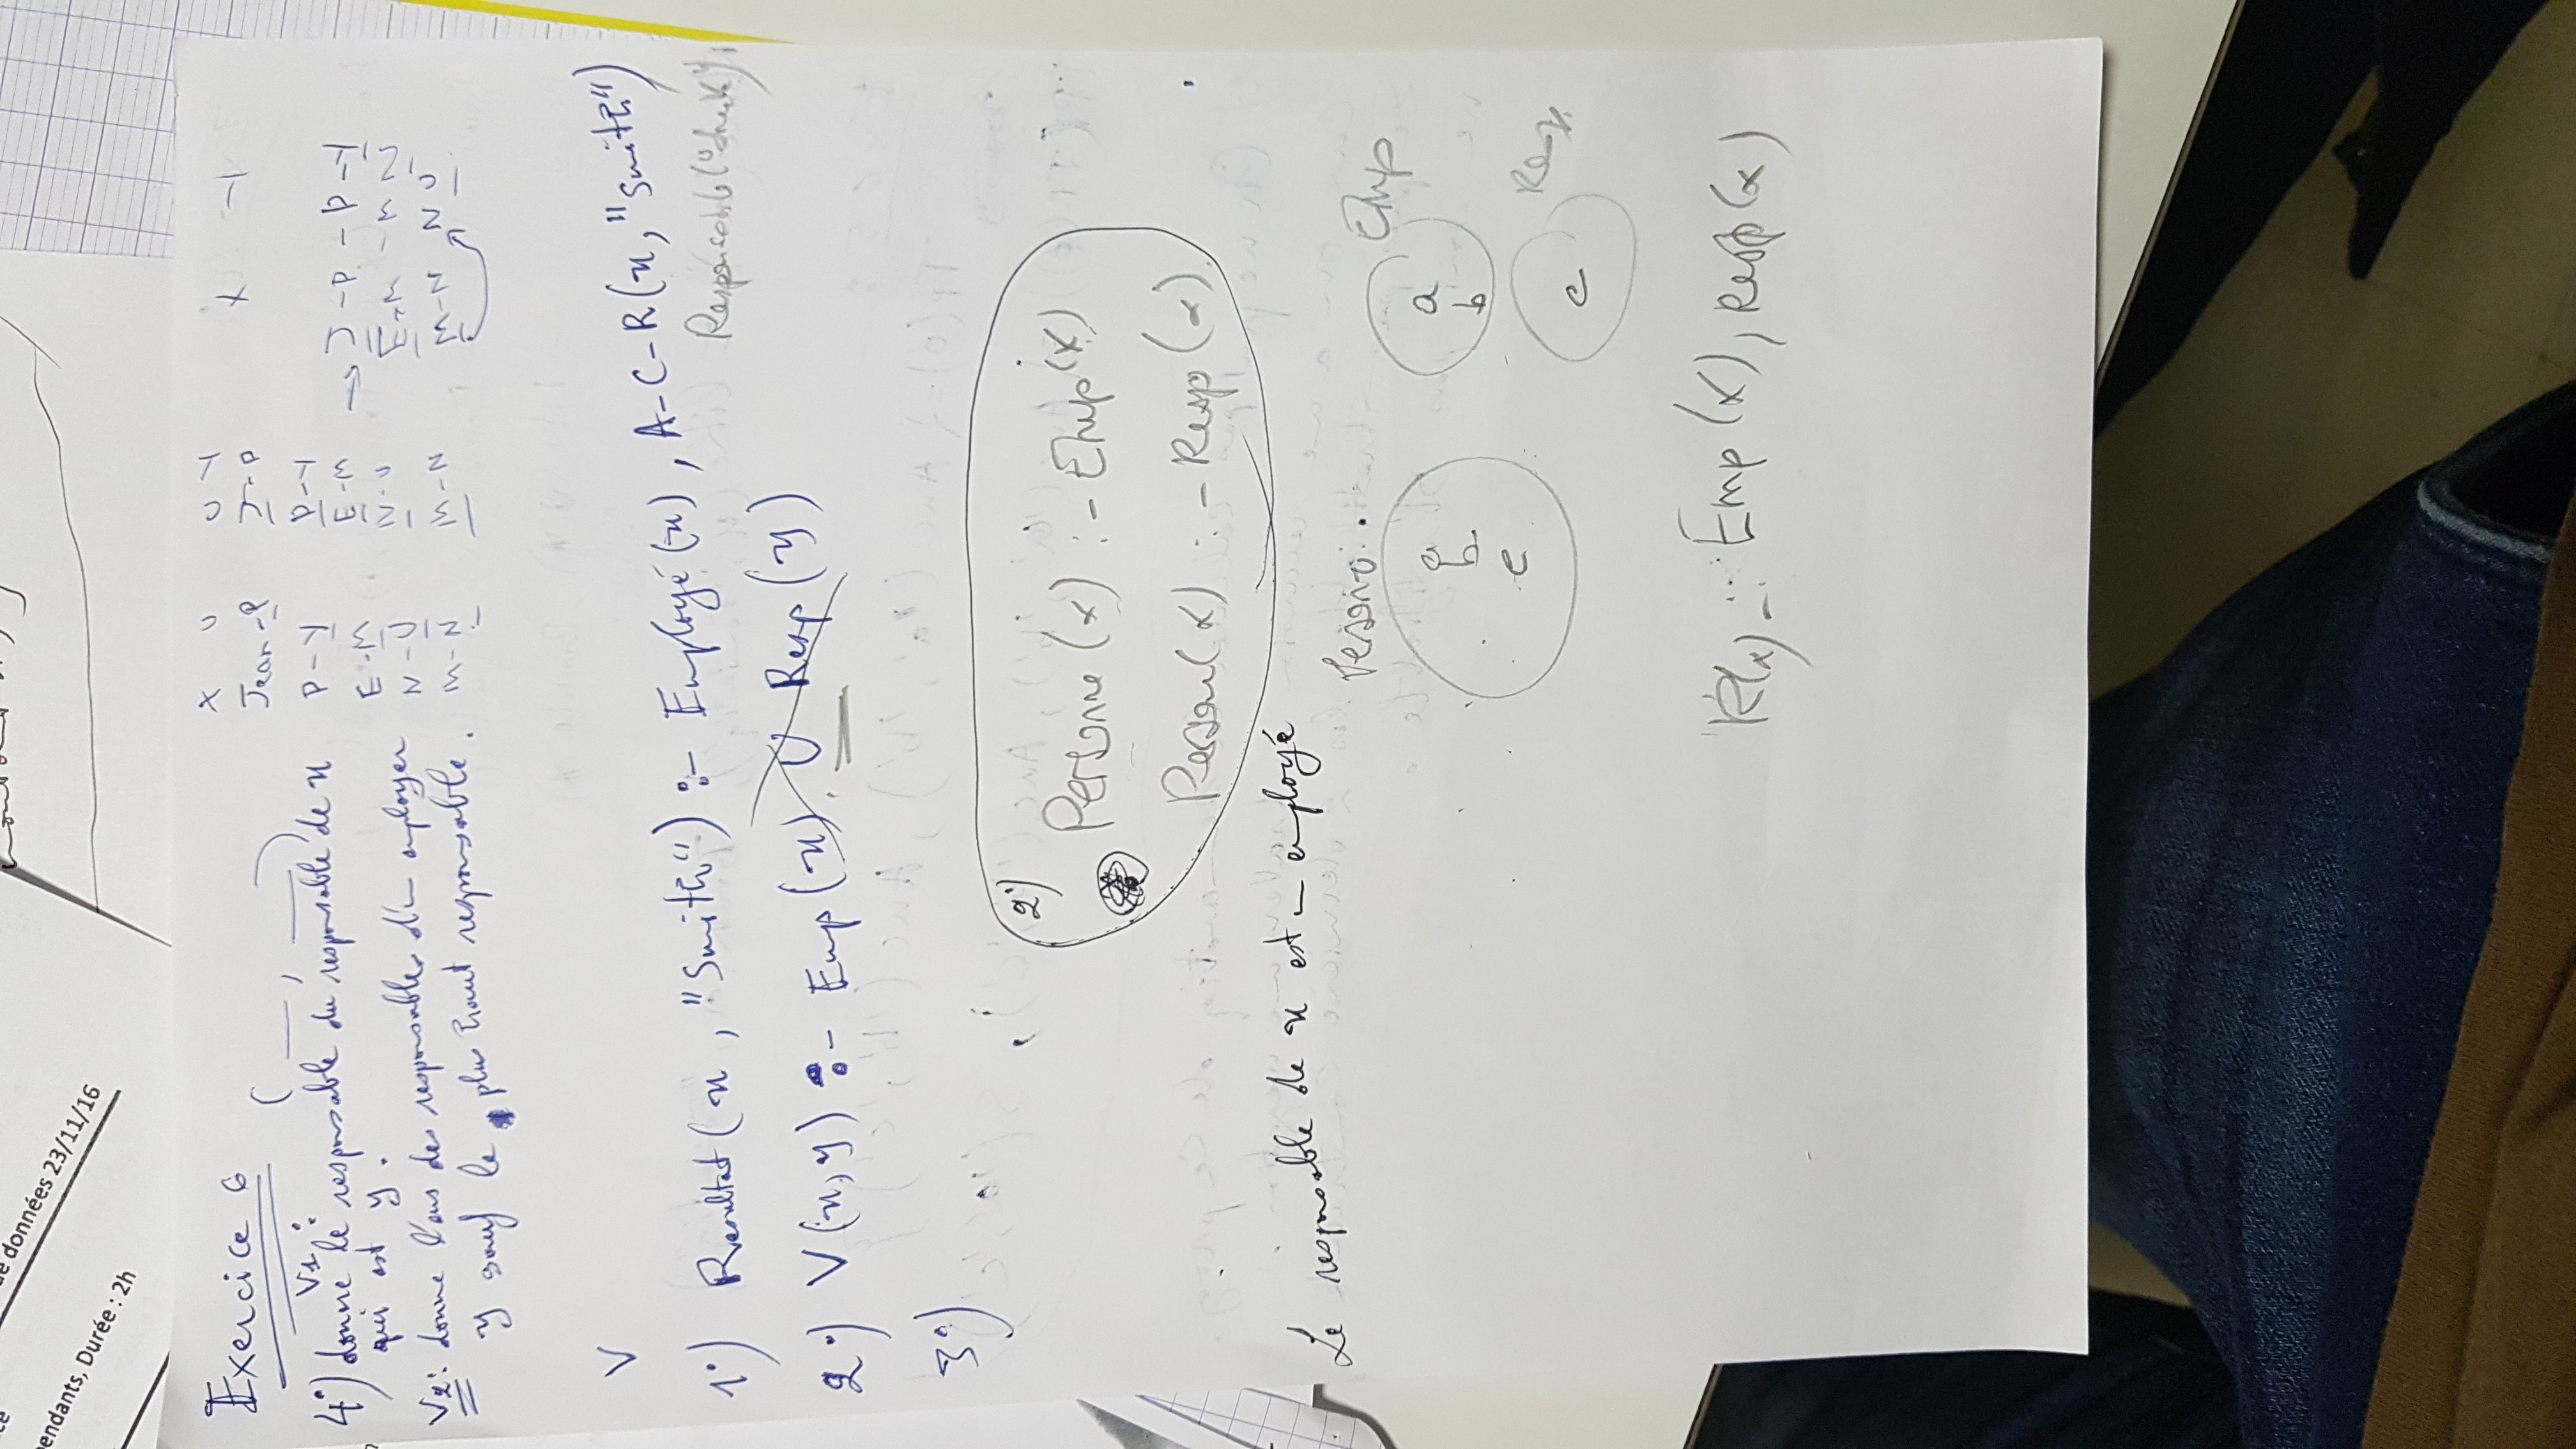 de données 23/11/16
endants, Durée : 2h
Exercice 6
( __ , __ )
V1 :
4°) donne le responsable du responsable de x
qui est y.
V2 : donne tous des responsables d'un employer
y sauf le plus haut responsable.
X U
Jean - P
P - Y
E - M
N - U
M - N
U Y
J - P
P - Y
E - M
N - U
M - N
X Y
→ J - P - P - Y
E - M - M N
M - N N U
V
1°) Resultat ( x , "Smith" ) :- Employé (x) , A-C-R (x, "Smith")
2°) V(x,y) :- Emp (x) U Resp (y)
3°)
2°)
Personne (x) :- Emp (x)
Person (x) :- Resp (x)
Le responsable de x est un employé
Emp
a
b
c
a
b
Resp.
c
R(x) -: Emp (x), Resp (x)